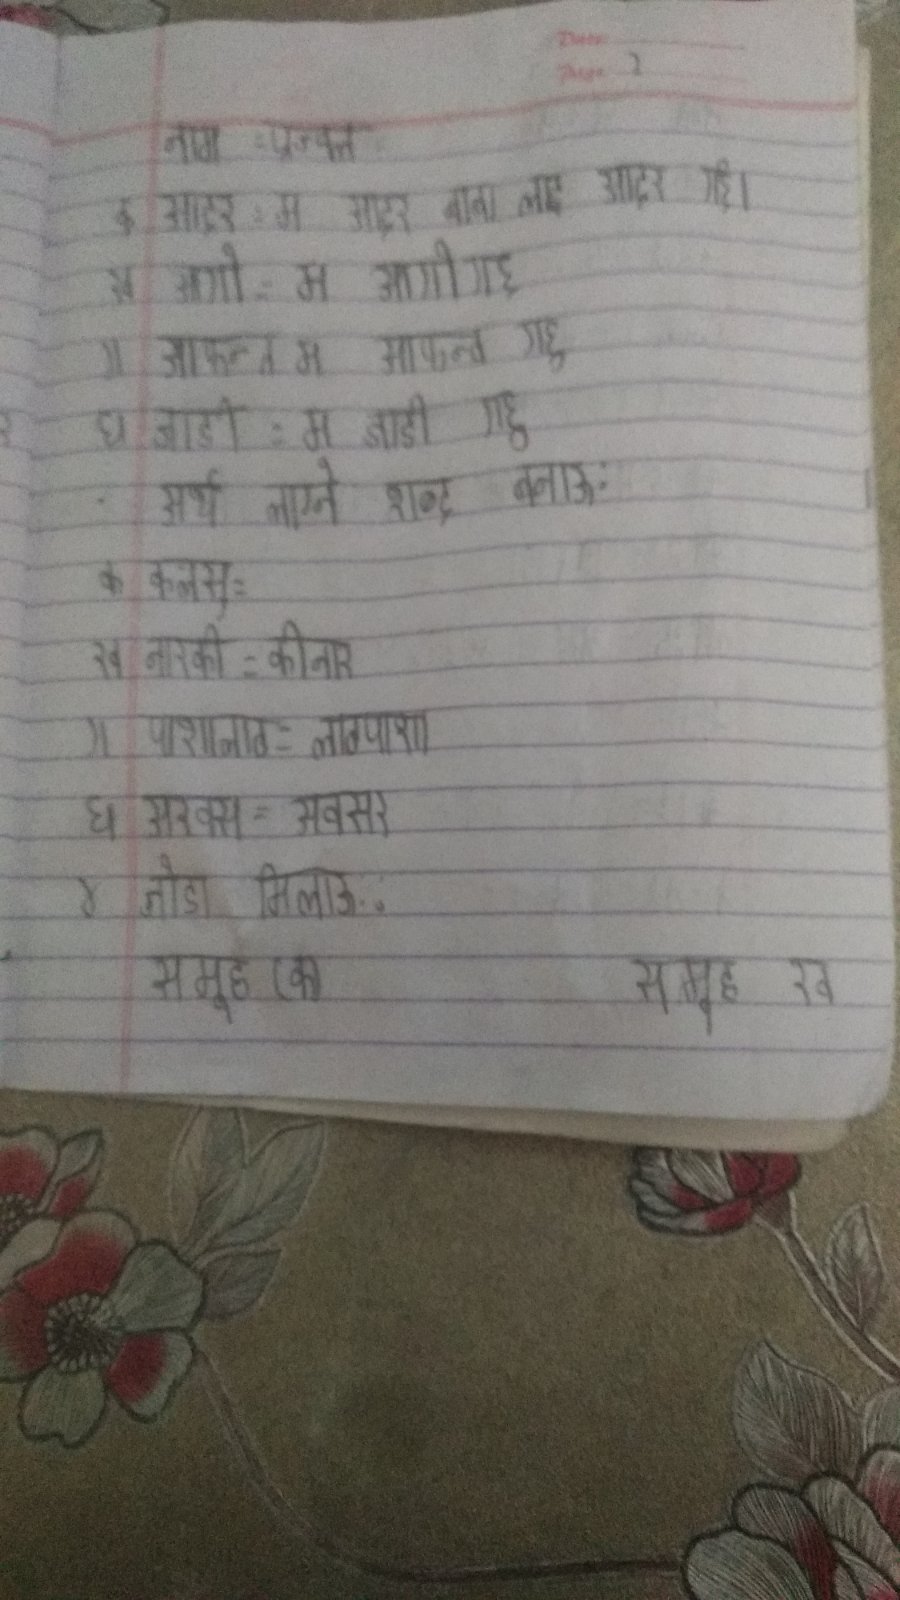 Date:
Page: 2
नाम = प्रज्वल
क आदर = म आदर बाबा लाइ आदर गर्छु।
ख आगो = म आगो गर्छु
ग आफन्त म आफन्त गर्छु
घ जाडी = म जाडी गर्छु
अर्थ लाग्ने शब्द बनाऊ:
क कलस् =
ख नारकी = कीनार
ग पाशालाठ = लाठपाशा
घ अरवस = अवसर
४ जोडा मिलाऊ:
समूह (क) समूह ख